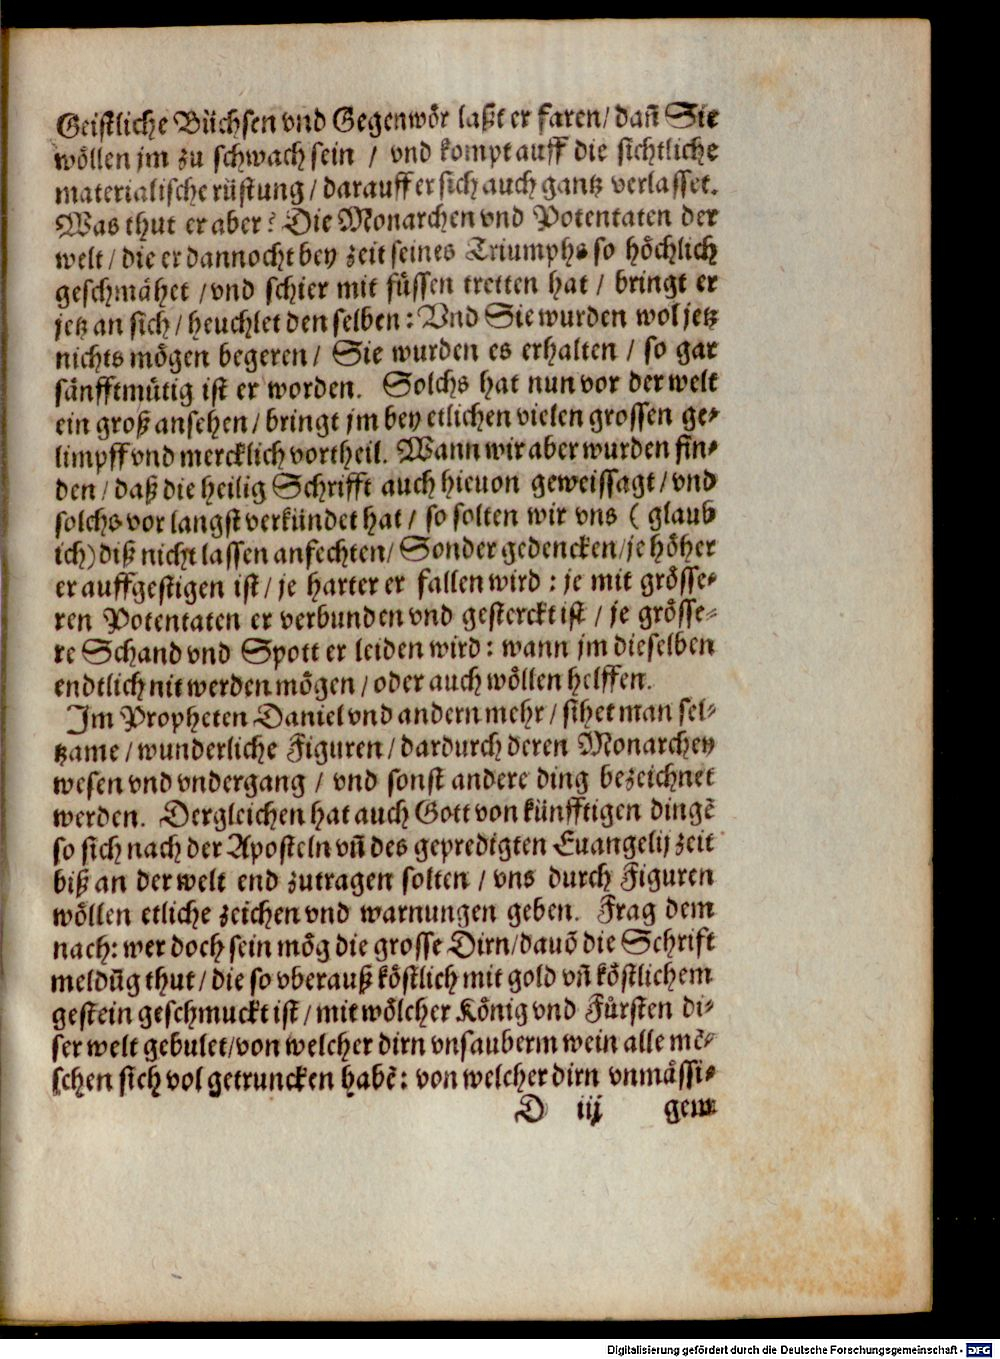 Geistliche Büchsen vnd Gegenwör laßt er faren/ dañ Sie
wöllen jm zu schwach sein / vnd kompt auff die sichtliche
materialische rüstung/ darauff er sich auch gantz verlasset.
Was thut er aber? Die Monarchen vnd Potentaten der
welt/ die er dannocht bey zeit seines Triumphs so höchlich
geschmähet /vnd schier mit füssen tretten hat / bringt er
jetz an sich/ heuchlet den selben: Vnd Sie wurden wol jetz
nichts mögen begeren/ Sie wurden es erhalten / so gar
sänfftmütig ist er worden. Solchs hat nun vor der welt
ein groß ansehen/ bringt jm bey etlichen vielen grossen ge-
limpff vnd mercklich vortheil. Wann wir aber wurden fin-
den/ daß die heilig Schrifft auch hieuon geweissagt/ vnd
solchs vor langst verkündet hat/ so solten wir vns ( glaub
ich) diß nicht lassen anfechten/ Sonder gedencken/ je höher
er auffgestigen ist/ je harter er fallen wird : je mit grösse-
ren Potentaten er verbunden vnd gesterckt ist / je grösse-
re Schand vnd Spott er leiden wird: wann jm dieselben
endtlich nit werden mögen/ oder auch wöllen helffen.
Im Propheten Daniel vnd andern mehr/ sihet man sel-
tzame/ wunderliche Figuren/ dardurch deren Monarchey
wesen vnd vndergang / vnd sonst andere ding bezeichnet
werden. Dergleichen hat auch Gott von künfftigen dingē
so sich nach der Aposteln vñ des gepredigten Euangelij zeit
biß an der welt end zutragen solten / vns durch Figuren
wöllen etliche zeichen vnd warnungen geben. Frag dem
nach: wer doch sein mög die grosse Dirn/ dauō die Schrift
meldūg thut/ die so vberauß köstlich mit gold vñ köstlichem
gestein geschmuckt ist/ mit wölcher König vnd Fürsten di-
ser welt gebulet/ von welcher dirn vnsauberm wein alle mē-
schen sich vol getruncken habē: von welcher dirn vnmässi-
D iij gem
Digitalisierung gefördert durch die Deutsche Forschungsgemeinschaft - DFG